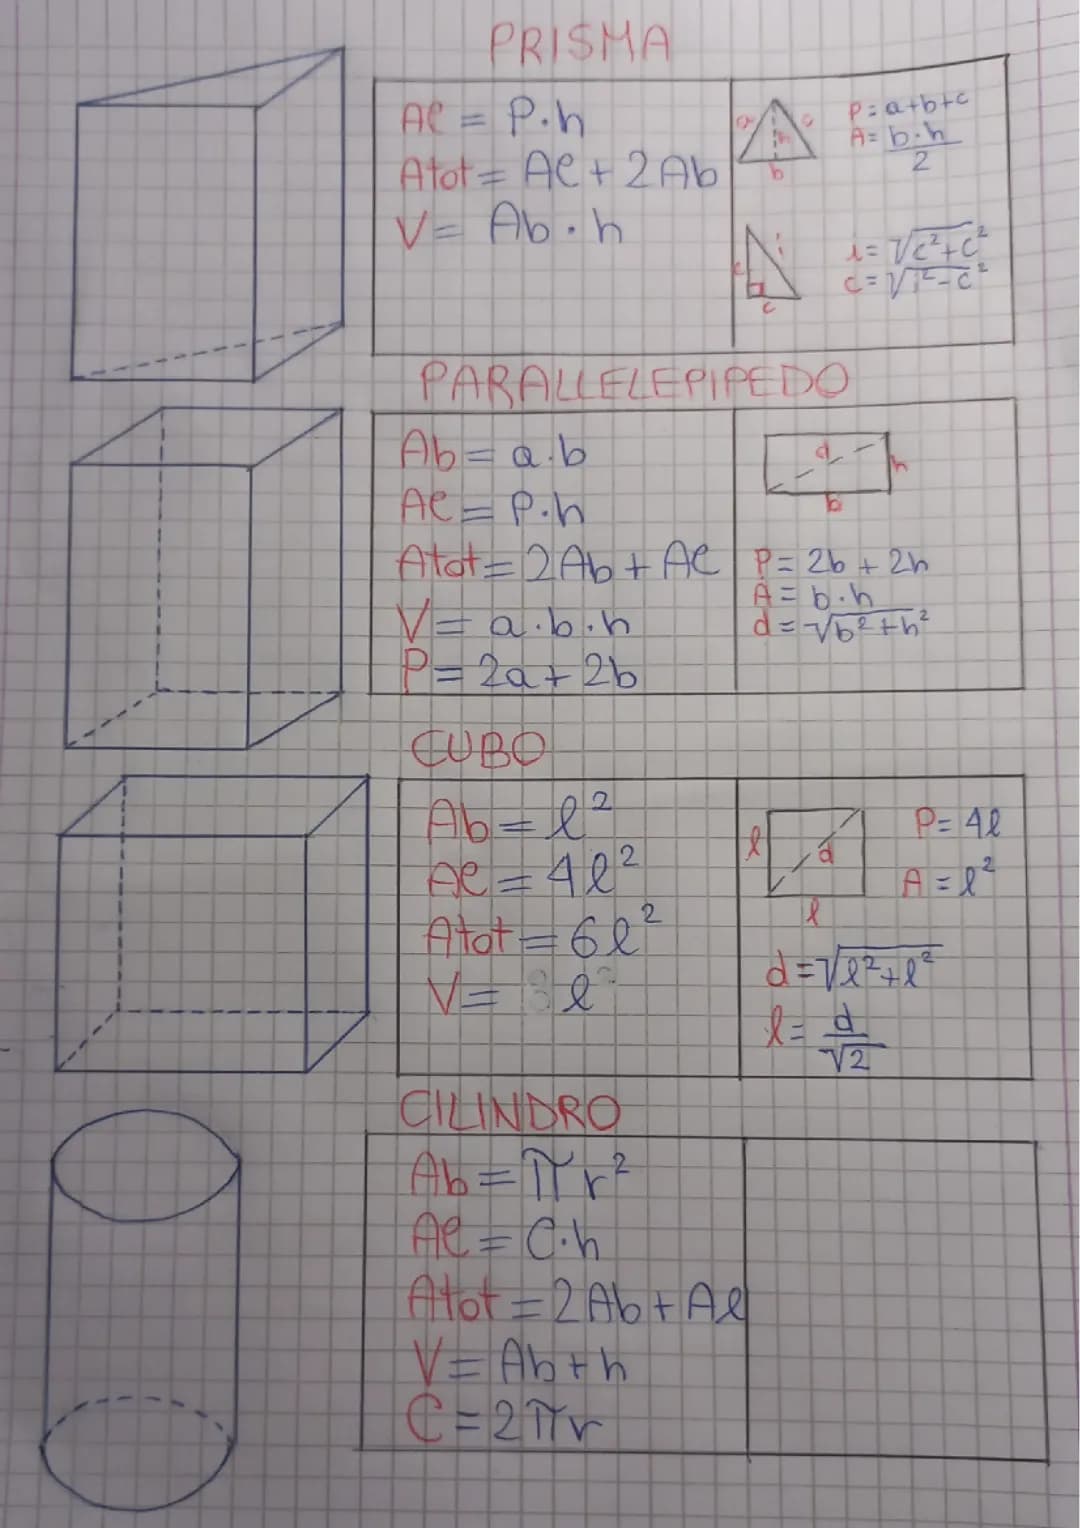 PRISMA
Al = P·h
Atot = Al + 2Ab
V = Ab·h
a c
h
b
P = a+b+c
A = b·h
2
c i
c
i = √c²+c²
c = √i²-c²
PARALLELEPIPEDO
Ab = a·b
Al = P·h
Atot = 2Ab + Al
V = a·b·h
P = 2a + 2b
d
h
b
P = 2b + 2h
A = b·h
d = √b²+h²
CUBO
Ab = l²
Al = 4l²
Atot = 6l²
V = l
l d
l
P = 4l
A = l²
d = √l²+l²
l = d
√2
CILINDRO
Ab = πr²
Al = C·h
Atot = 2Ab + Al
V = Ab + h
C = 2πr